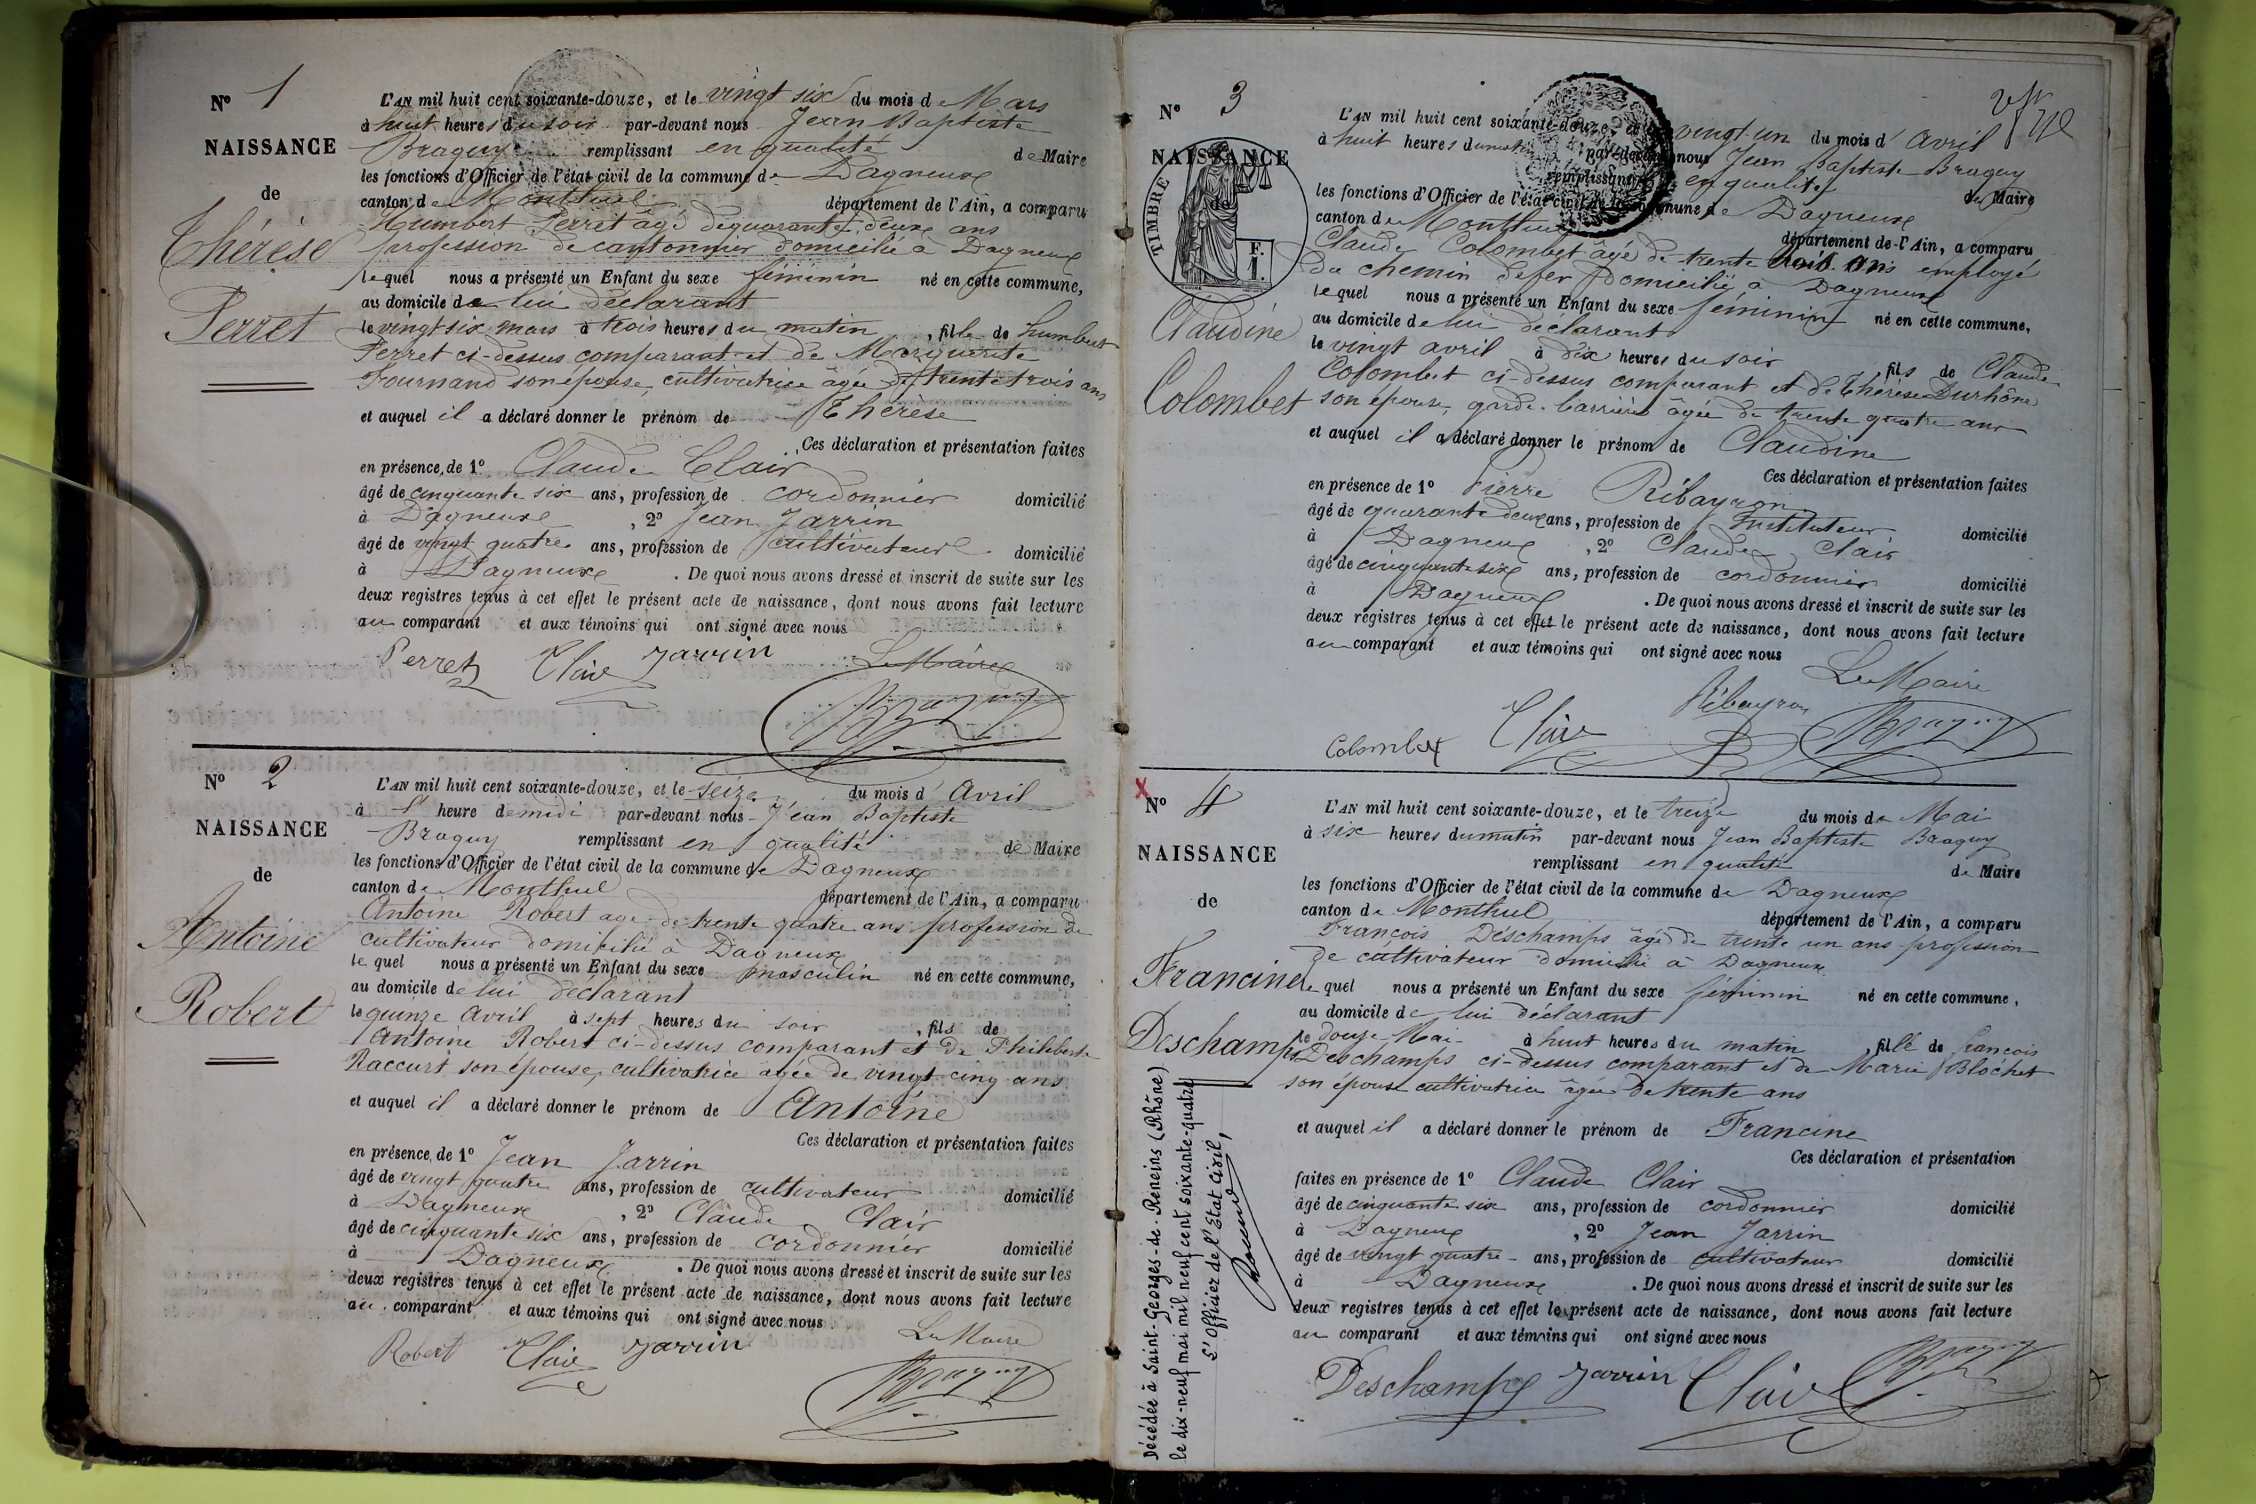 N° 1
NAISSANCE
de
Thérèse
Perret
L'AN mil huit cent soixante-douze, et le vingt six du mois de Mars
à huit heures du soir par-devant nous Jean Baptiste
Braguy remplissant en qualité de Maire
les fonctions d'Officier de l'état civil de la commune de Dagneux
canton de Montluel département de l'Ain, a comparu
Humbert Perret âgé de quarante deux ans
profession de cantonnier domicilié à Dagneux
lequel nous a présenté un Enfant du sexe féminin né en cette commune,
au domicile de lui déclarant
le vingt-six mars à trois heures du matin, fille de humbert
Perret ci-dessus comparant et de Marguerite
Fournand son épouse, cultivatrice âgée de trente trois ans
et auquel il a déclaré donner le prénom de Thérèse
Ces déclaration et présentation faites
en présence de 1° Claude Clair
âgé de cinquante six ans, profession de cordonnier domicilié
à Dagneux, 2° Jean Jarrin
âgé de vingt quatre ans, profession de cultivateur domicilié
à Dagneux. De quoi nous avons dressé et inscrit de suite sur les
deux registres tenus à cet effet le présent acte de naissance, dont nous avons fait lecture
au comparant et aux témoins qui ont signé avec nous
Perret Clair Jarrin Le Maire
Braguy
N° 2
NAISSANCE
de
Antoine
Robert
L'AN mil huit cent soixante-douze, et le seize du mois d'Avril
à heure de midi par-devant nous Jean Baptiste
Braguy remplissant en qualité de Maire
les fonctions d'Officier de l'état civil de la commune de Dagneux
canton de Montluel département de l'Ain, a comparu
Antoine Robert age de trente quatre ans profession de
cultivateur domicilié à Dagneux
le quel nous a présenté un Enfant du sexe masculin né en cette commune,
au domicile de lui déclarant
le quinze Avril à sept heures du soir, fils de
Antoine Robert ci-dessus comparant et de Philiberte
Raccurt son épouse, cultivatrice agée de vingt-cinq ans
et auquel il a déclaré donner le prénom de Antoine
Ces déclaration et présentation faites
en présence de 1° Jean Jarrin
âgé de vingt quatre ans, profession de cultivateur domicilié
à Dagneux, 2° Claude Clair
âgé de cinquante six ans, profession de cordonnier domicilié
à Dagneux. De quoi nous avons dressé et inscrit de suite sur les
deux registres tenus à cet effet le présent acte de naissance, dont nous avons fait lecture
au comparant et aux témoins qui ont signé avec nous
Robert Clair Jarrin Le Maire
Braguy
N° 3
NAISSANCE
de
TIMBRE
F.
1.
Claudine
Colombet
L'AN mil huit cent soixante-douze, et le vingt-un du mois d'Avril
à huit heures du matin par-devant nous Jean Baptiste Braguy
remplissant en qualité de Maire
les fonctions d'Officier de l'état civil de la commune de Dagneux
canton de Montluel département de l'Ain, a comparu
Claude Colombet âgé de trente trois ans employé
du chemin de fer domicilié à Dagneux
lequel nous a présenté un Enfant du sexe féminin né en cette commune,
au domicile de lui déclarant
le vingt avril à dix heures du soir fils de Claude
Colombet ci-dessus comparant et de Thérèse Durhône
son épouse, garde-barrière âgée de trente quatre ans
et auquel il a déclaré donner le prénom de Claudine
Ces déclaration et présentation faites
en présence de 1° Pierre Ribayron
âgé de quarante deux ans, profession de Instituteur domicilié
à Dagneux, 2° Claude Clair
âgé de cinquante six ans, profession de cordonnier domicilié
à Dagneux. De quoi nous avons dressé et inscrit de suite sur les
deux registres tenus à cet effet le présent acte de naissance, dont nous avons fait lecture
au comparant et aux témoins qui ont signé avec nous
Le Maire
Colombet Clair Ribayron Braguy
X
N° 4
NAISSANCE
de
Francine
Deschamps
L'AN mil huit cent soixante-douze, et le treize du mois de Mai
à six heures du matin par-devant nous Jean Baptiste Braguy
remplissant en qualité de Maire
les fonctions d'Officier de l'état civil de la commune de Dagneux
canton de Montluel département de l'Ain, a comparu
François Déschamps âgé de trente un ans profession
de cultivateur domicilié à Dagneux
le quel nous a présenté un Enfant du sexe féminin né en cette commune,
au domicile de lui déclarant
le douze Mai à huit heures du matin, fille de françois
Deschamps ci-dessus comparant et de Marie Blochet
son épouse cultivatrice âgée de trente ans
et auquel il a déclaré donner le prénom de Francine
Ces déclaration et présentation
faites en présence de 1° Claude Clair
âgé de cinquante six ans, profession de cordonnier domicilié
à Dagneux, 2° Jean Jarrin
âgé de vingt quatre ans, profession de cultivateur domicilié
à Dagneux. De quoi nous avons dressé et inscrit de suite sur les
deux registres tenus à cet effet le présent acte de naissance, dont nous avons fait lecture
au comparant et aux témoins qui ont signé avec nous
Deschamps Jarrin Clair Braguy
Décédée à Saint-Georges-de-Reneins (Rhône)
le dix-neuf mai mil neuf cent soixante-quatre
L'Officier de l'Etat Civil,